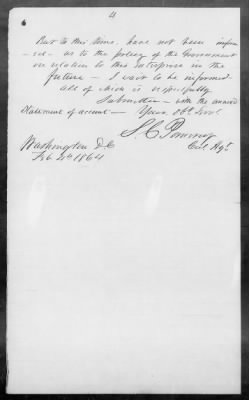 4
But to this time, have not been infor
ed - as to the policy of the Government
in relation to this enterprise in the
future - I wait to be informed
all of which is respectfully
Submitted - with the annexed
Statement of account - Your Obt Servt
S. C. Pomeroy
Washington D.C.
Feb 4th 1864